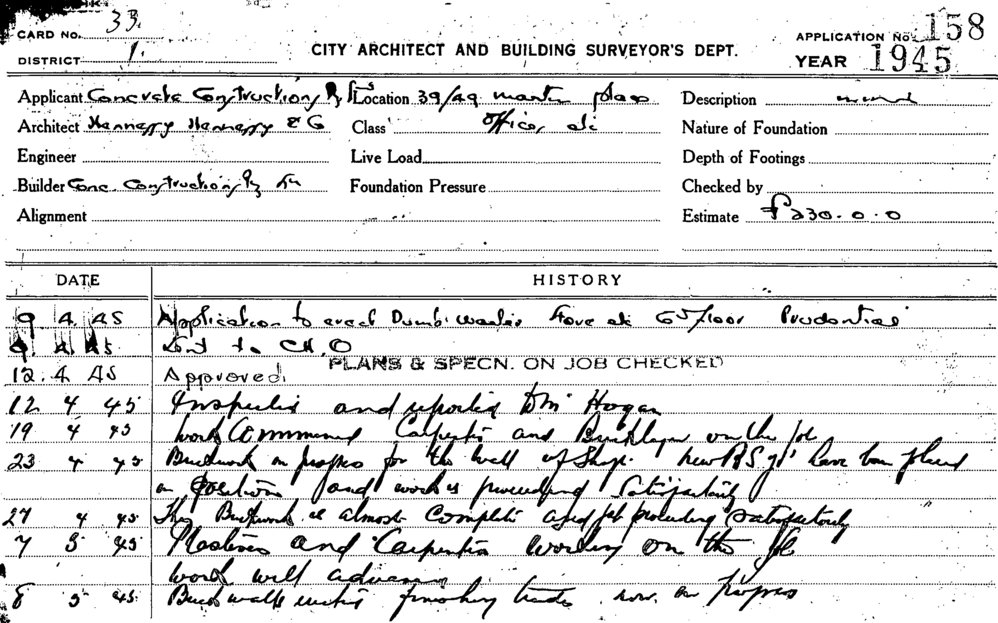 CARD NO. 33
DISTRICT 1.
CITY ARCHITECT AND BUILDING SURVEYOR'S DEPT.
APPLICATION No. 158
YEAR 1945
Applicant Concrete Constructions Location 39/49 Martin place Description
Architect Hennessy Hennessy & Co Class Offices, etc Nature of Foundation
Engineer Live Load Depth of Footings
Builder Conc. Constructions Foundation Pressure Checked by
Alignment Estimate £230.0.0
DATE HISTORY
9 4 45 Application to erect Dumb waiter 6th floor Prudential
9 4 45 Sent to C.H.O
PLANS & SPECN. ON JOB CHECKED
12. 4 45 Approved.
12 4 45 Inspected and reported to Mr Hogan
19 4 45 Work Commenced Carpenters and Bricklayers on the job
23 4 45 Brickwork in progress for the wall of Shop. new R S Js have been placed
in positions and work is proceeding satisfactorily
27 4 45 The Brickwork is almost complete and job proceeding satisfactorily
7 5 45 Plasterers and Carpenters working on the job
work well advanced
8 5 45 Brick walls finishing trades now in progress